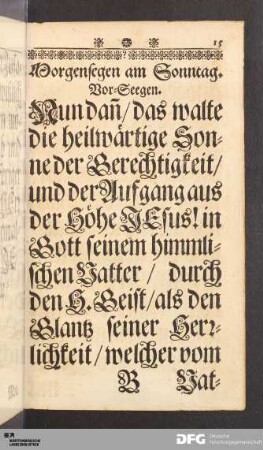 15
Morgensegen am Sonntag.
Vor-Seegen.
Nun dañ/das walte
die heilwärtige Son-
ne der Gerechtigkeit/
und der Aufgang aus
der Höhe JEsus! in
Gott seinem himmli-
schen Vatter / durch
den H. Geist/als den
Glantz seiner Herr-
lichkeit/welcher vom
B Vat-
WÜRTTEMBERGISCHE
LANDESBIBLIOTHEK
DFG Deutsche
Forschungsgemeinschaft